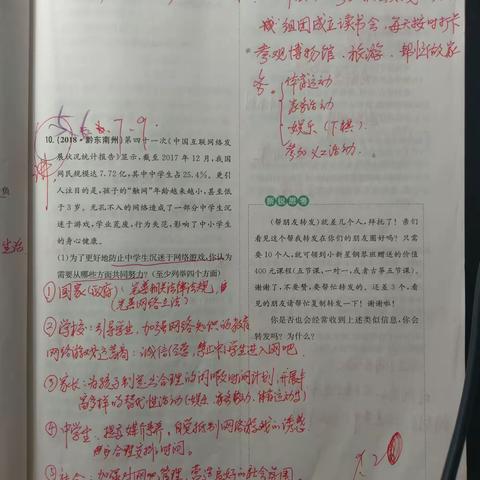 城组团成立读书会,每天按时打卡
参观博物馆、旅游、帮忙做家
务
体育运动
家务活动
娱乐(下棋)
参加义工活动.
5. 6. 7-9.
10.(2018·黔东南州)第四十一次《中国互联网络发
展状况统计报告》显示,截至 2017 年 12 月,我国
网民规模达 7.72 亿,其中中学生占 25.4%。更引
人注目的是,孩子的“触网”年龄越来越小,甚至低
于 3 岁。无孔不入的网络造成了一部分中学生沉
迷于游戏,学业荒废,行为失范,影响了中小学生
的身心健康。
(1)为了更好地防止中学生沉迷于网络游戏,你认为
需要从哪些方面共同努力?(至少列举四个方面)
①国家(政府):完善相关法律法规,
(完善网络立法)
②学校:引导学生,加强网络知识的教育
网络游戏运营商:诚信经营,禁止中小学生进入网吧.
③家长:为孩子制定出合理的闲暇时间计划,开展丰
富多样的替代性活动
④中学生:提高媒介素养,自觉抵制网络游戏的诱惑
合理安排时间。
⑤社会:加强对网吧管理,营造良好的社会氛围
生活
新锐思考
(帮朋友转发)就差几个人,拜托了!亲们
看见这个帮我转发在你们的朋友圈好吗?只需
要 10 个人,就可领到小新星钢琴班赠送的价值
400 元课程(五节课,一对一,或者古筝五节课)。
谢谢了,不要赞,要帮忙转发的,还差 3 个,看
见的朋友请帮忙复制转发一下!谢谢啦!
你是否也会经常收到上述类似信息,你会
转发吗?为什么?